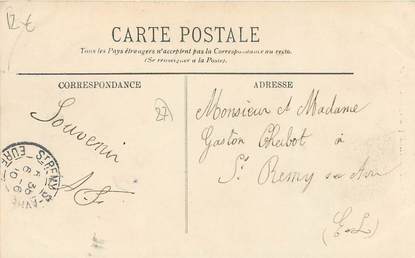 12€
CARTE POSTALE
Tous les Pays étrangers n'acceptent pas la Correspondance au recto.
(Se renseigner à la Poste).
CORRESPONDANCE
ADRESSE
Souvenir
27
Monsieur et Madame
Gaston à
St Remy sur Avre
(E-L)
St REMY
EURE